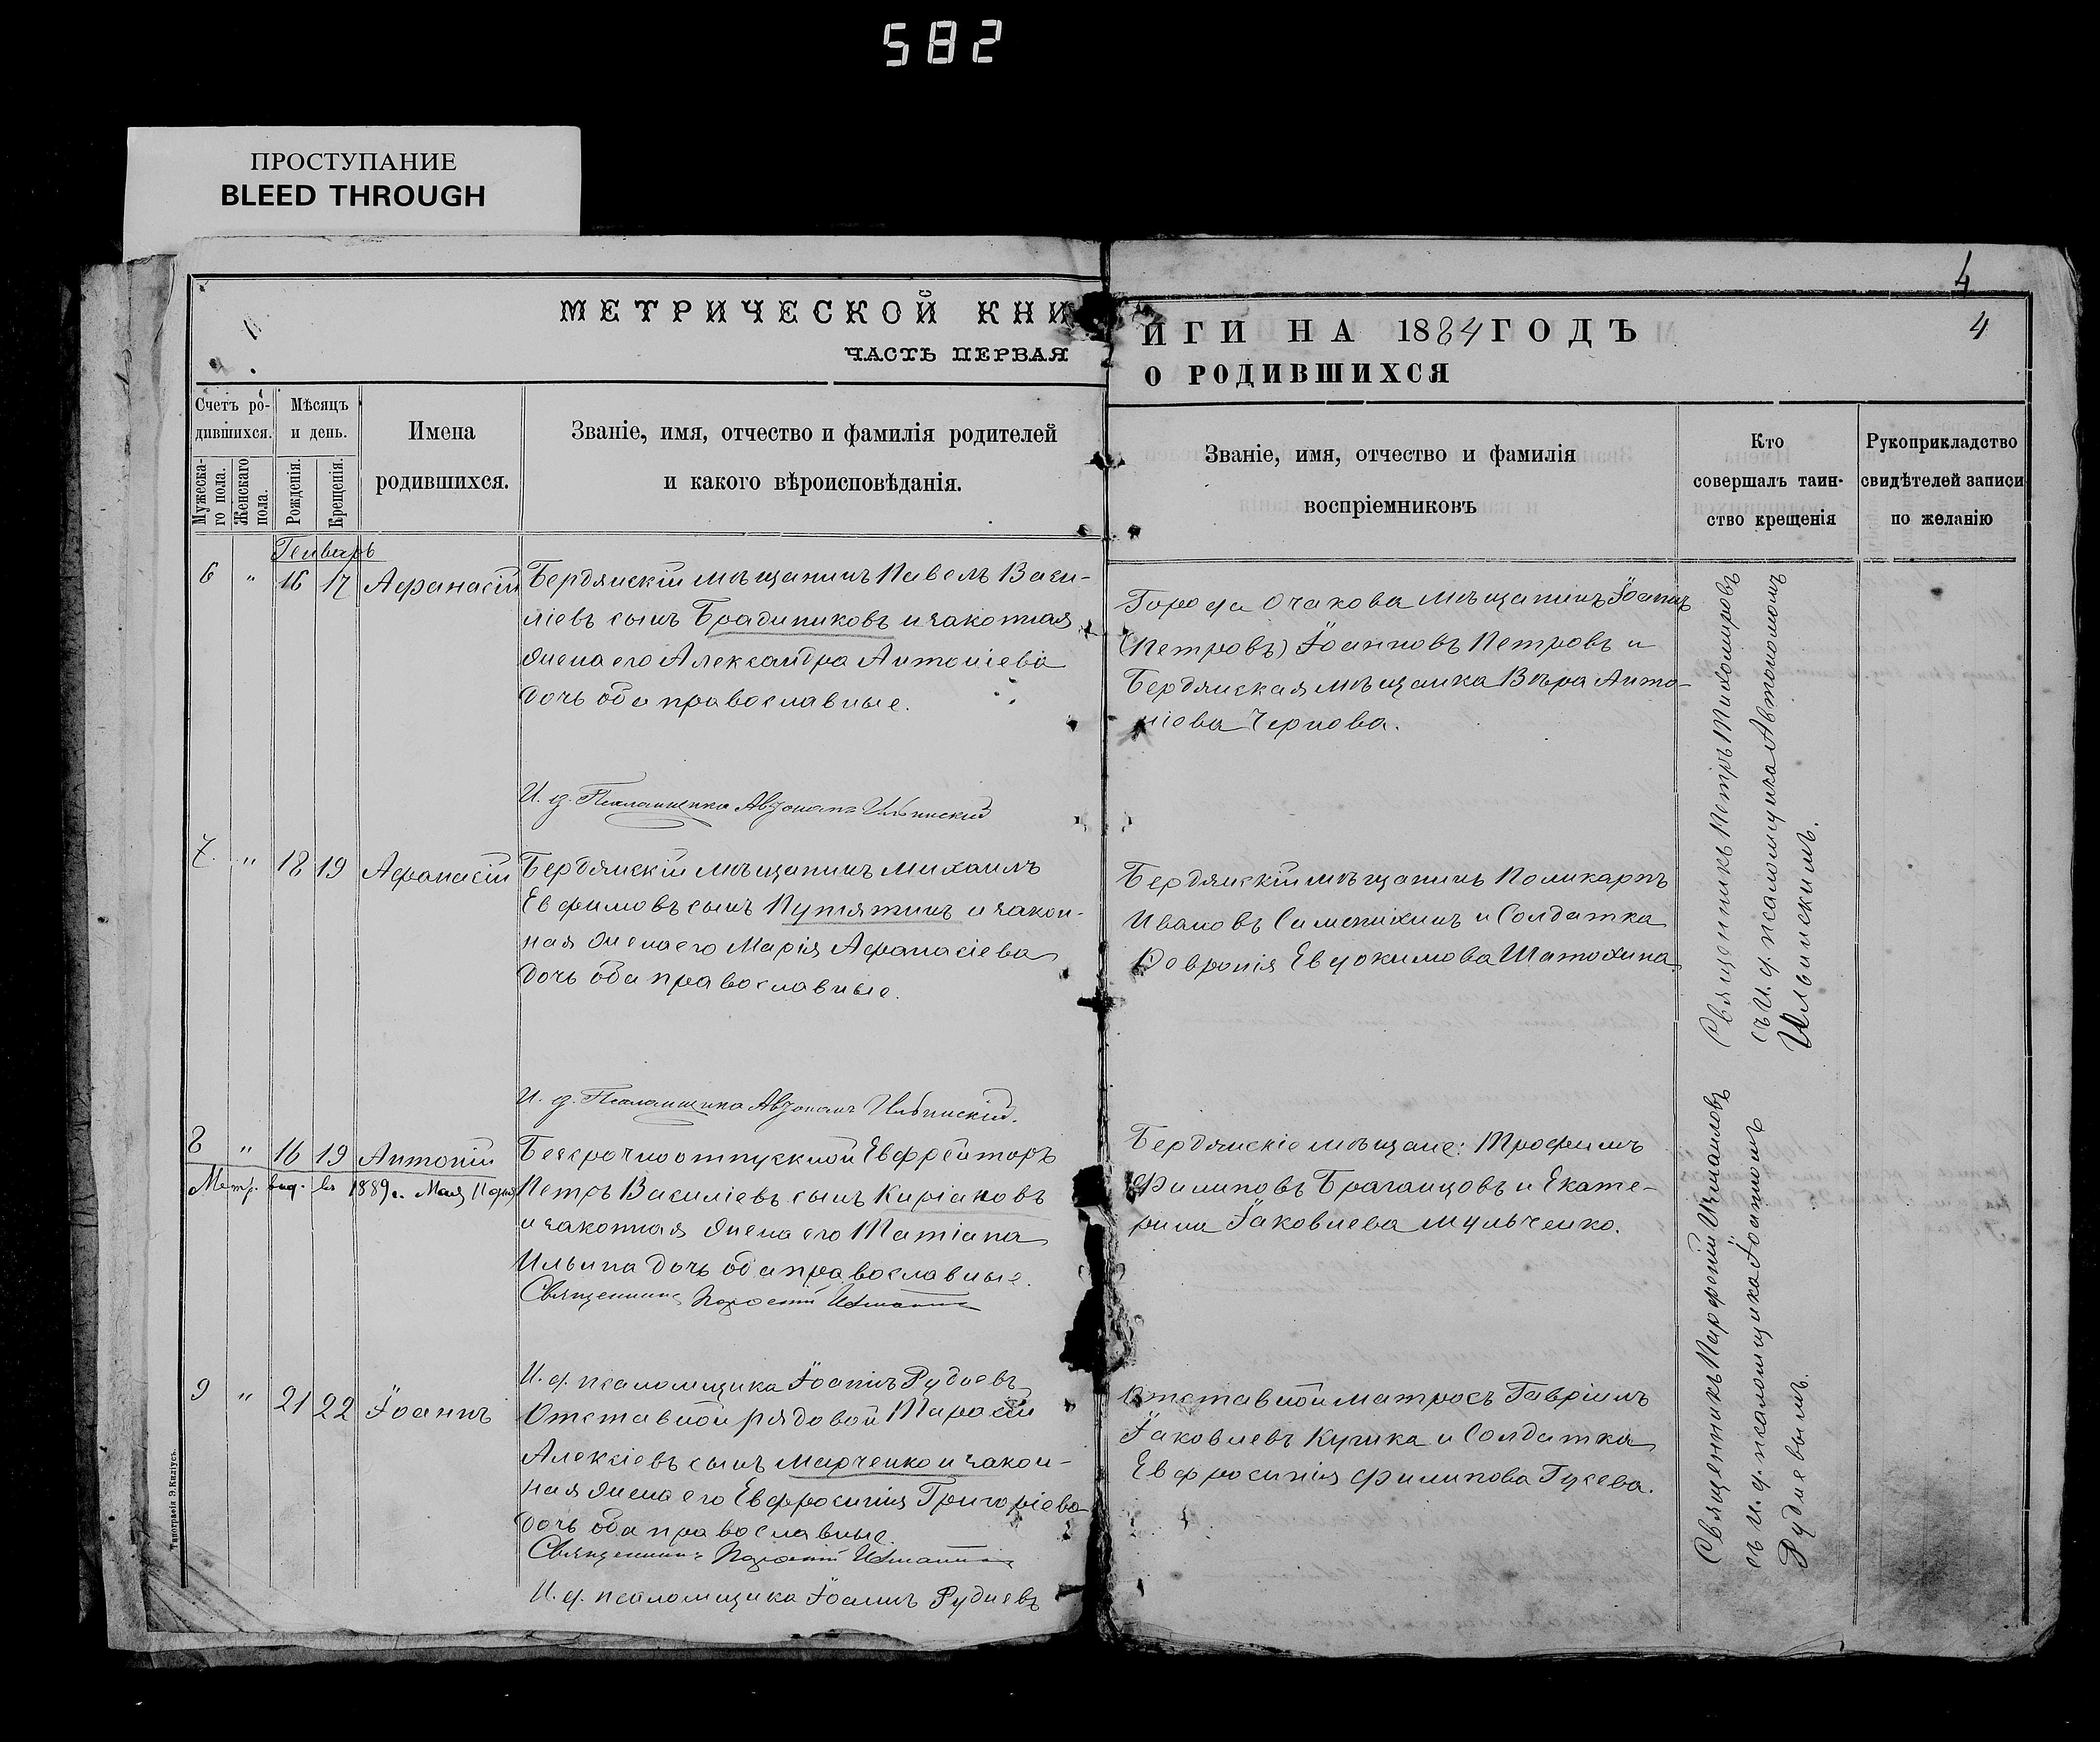 582
ПРОСТУПАНИЕ
BLEED THROUGH
МЕТРИЧЕСКОЙ КНИ
ЧАСТЬ ПЕРВАЯ
Счетъ ро-
дившихся.
Мужеска-
го пола.
Женскаго
пола.
Мѣсяцъ
и день.
Рожденія.
Крещенія.
Имена
родившихся.
Званіе, имя, отчество и фамилія родителей
и какого вѣроисповѣданія.
Генварь
6 " 16 17 Афанасій Бердянскій мѣщанинъ Павелъ Васи-
ліевъ сынъ Брадниковъ и законная
жена его Александра Антоніева
дочь оба православные.
И. д. Псаломщика Автономъ Ильинскій
7. " 18 19 Афанасій Бердянскій мѣщанинъ Михаилъ
Евфимовъ сынъ Путятинъ и закон-
ная жена его Марія Афанасіева
дочь оба православные.
И. д. Псаломщика Автономъ Ильинскій.
8 " 16 19 Антоній Безсрочноотпускной Евфрейторъ
Метр. выд. въ 1889 г. Мая 11 дня
Петръ Василіевъ сынъ Киріаковъ
и законная жена его Татіана
Ильина дочь оба православные.
Священникъ Парфеній
И. д. псаломщика Іоаннъ Рудневъ
9 " 21 22 Іоаннъ Отставной рядовой Тарасій
Алексіевъ сынъ Марченко и закон-
ная жена его Евфросинія Григоріева
дочь оба православные.
Священникъ Парфеній
И. д. псаломщика Іоаннъ Рудневъ
Типографія Э. Килиусъ.
4
ИГИ НА 1884 ГОДЪ
4
О РОДИВШИХСЯ
Званіе, имя, отчество и фамилія
воспріемниковъ
Кто
совершалъ таин-
ство крещенія
Рукоприкладство
свидѣтелей записи
по желанію
Города Очакова мѣщанинъ Іоаннъ
(Петровъ) Іоанновъ Петровъ и
Бердянская мѣщанка Вѣра Анто-
ніева Чернова.
Бердянскій мѣщанинъ Поликарпъ
Ивановъ и Солдатка
Февронія Евдокимова Шатохина.
Бердянскіе мѣщане: Трофимъ
Филиповъ Браганцовъ и Екате-
рина Іаковлева Мульченко.
Отставной матросъ Гавріилъ
Іаковлевъ Кучика и Солдатка
Евфросинія Филипова Гусева.
Священникъ Петръ Тихомировъ
съ И. д. псаломщика Автономомъ
Ильинскимъ.
Священникъ Парфеній
съ И. д. псаломщика Іоанномъ
Рудневымъ.